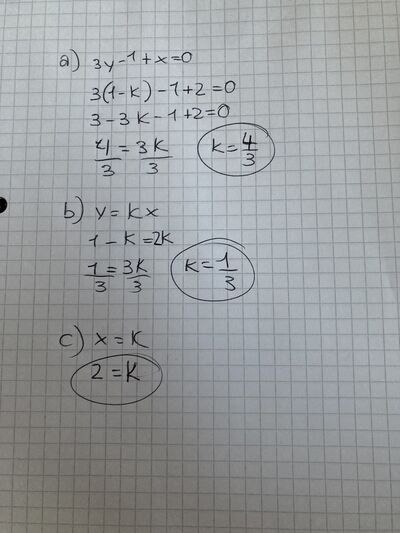 a) 3y-1+x=0
3(1-k)-1+2=0
3-3k-1+2=0
4/3=3k/3 k=4/3
b) y=kx
1-k=2k
1/3=3k/3 k=1/3
c) x=k
2=k